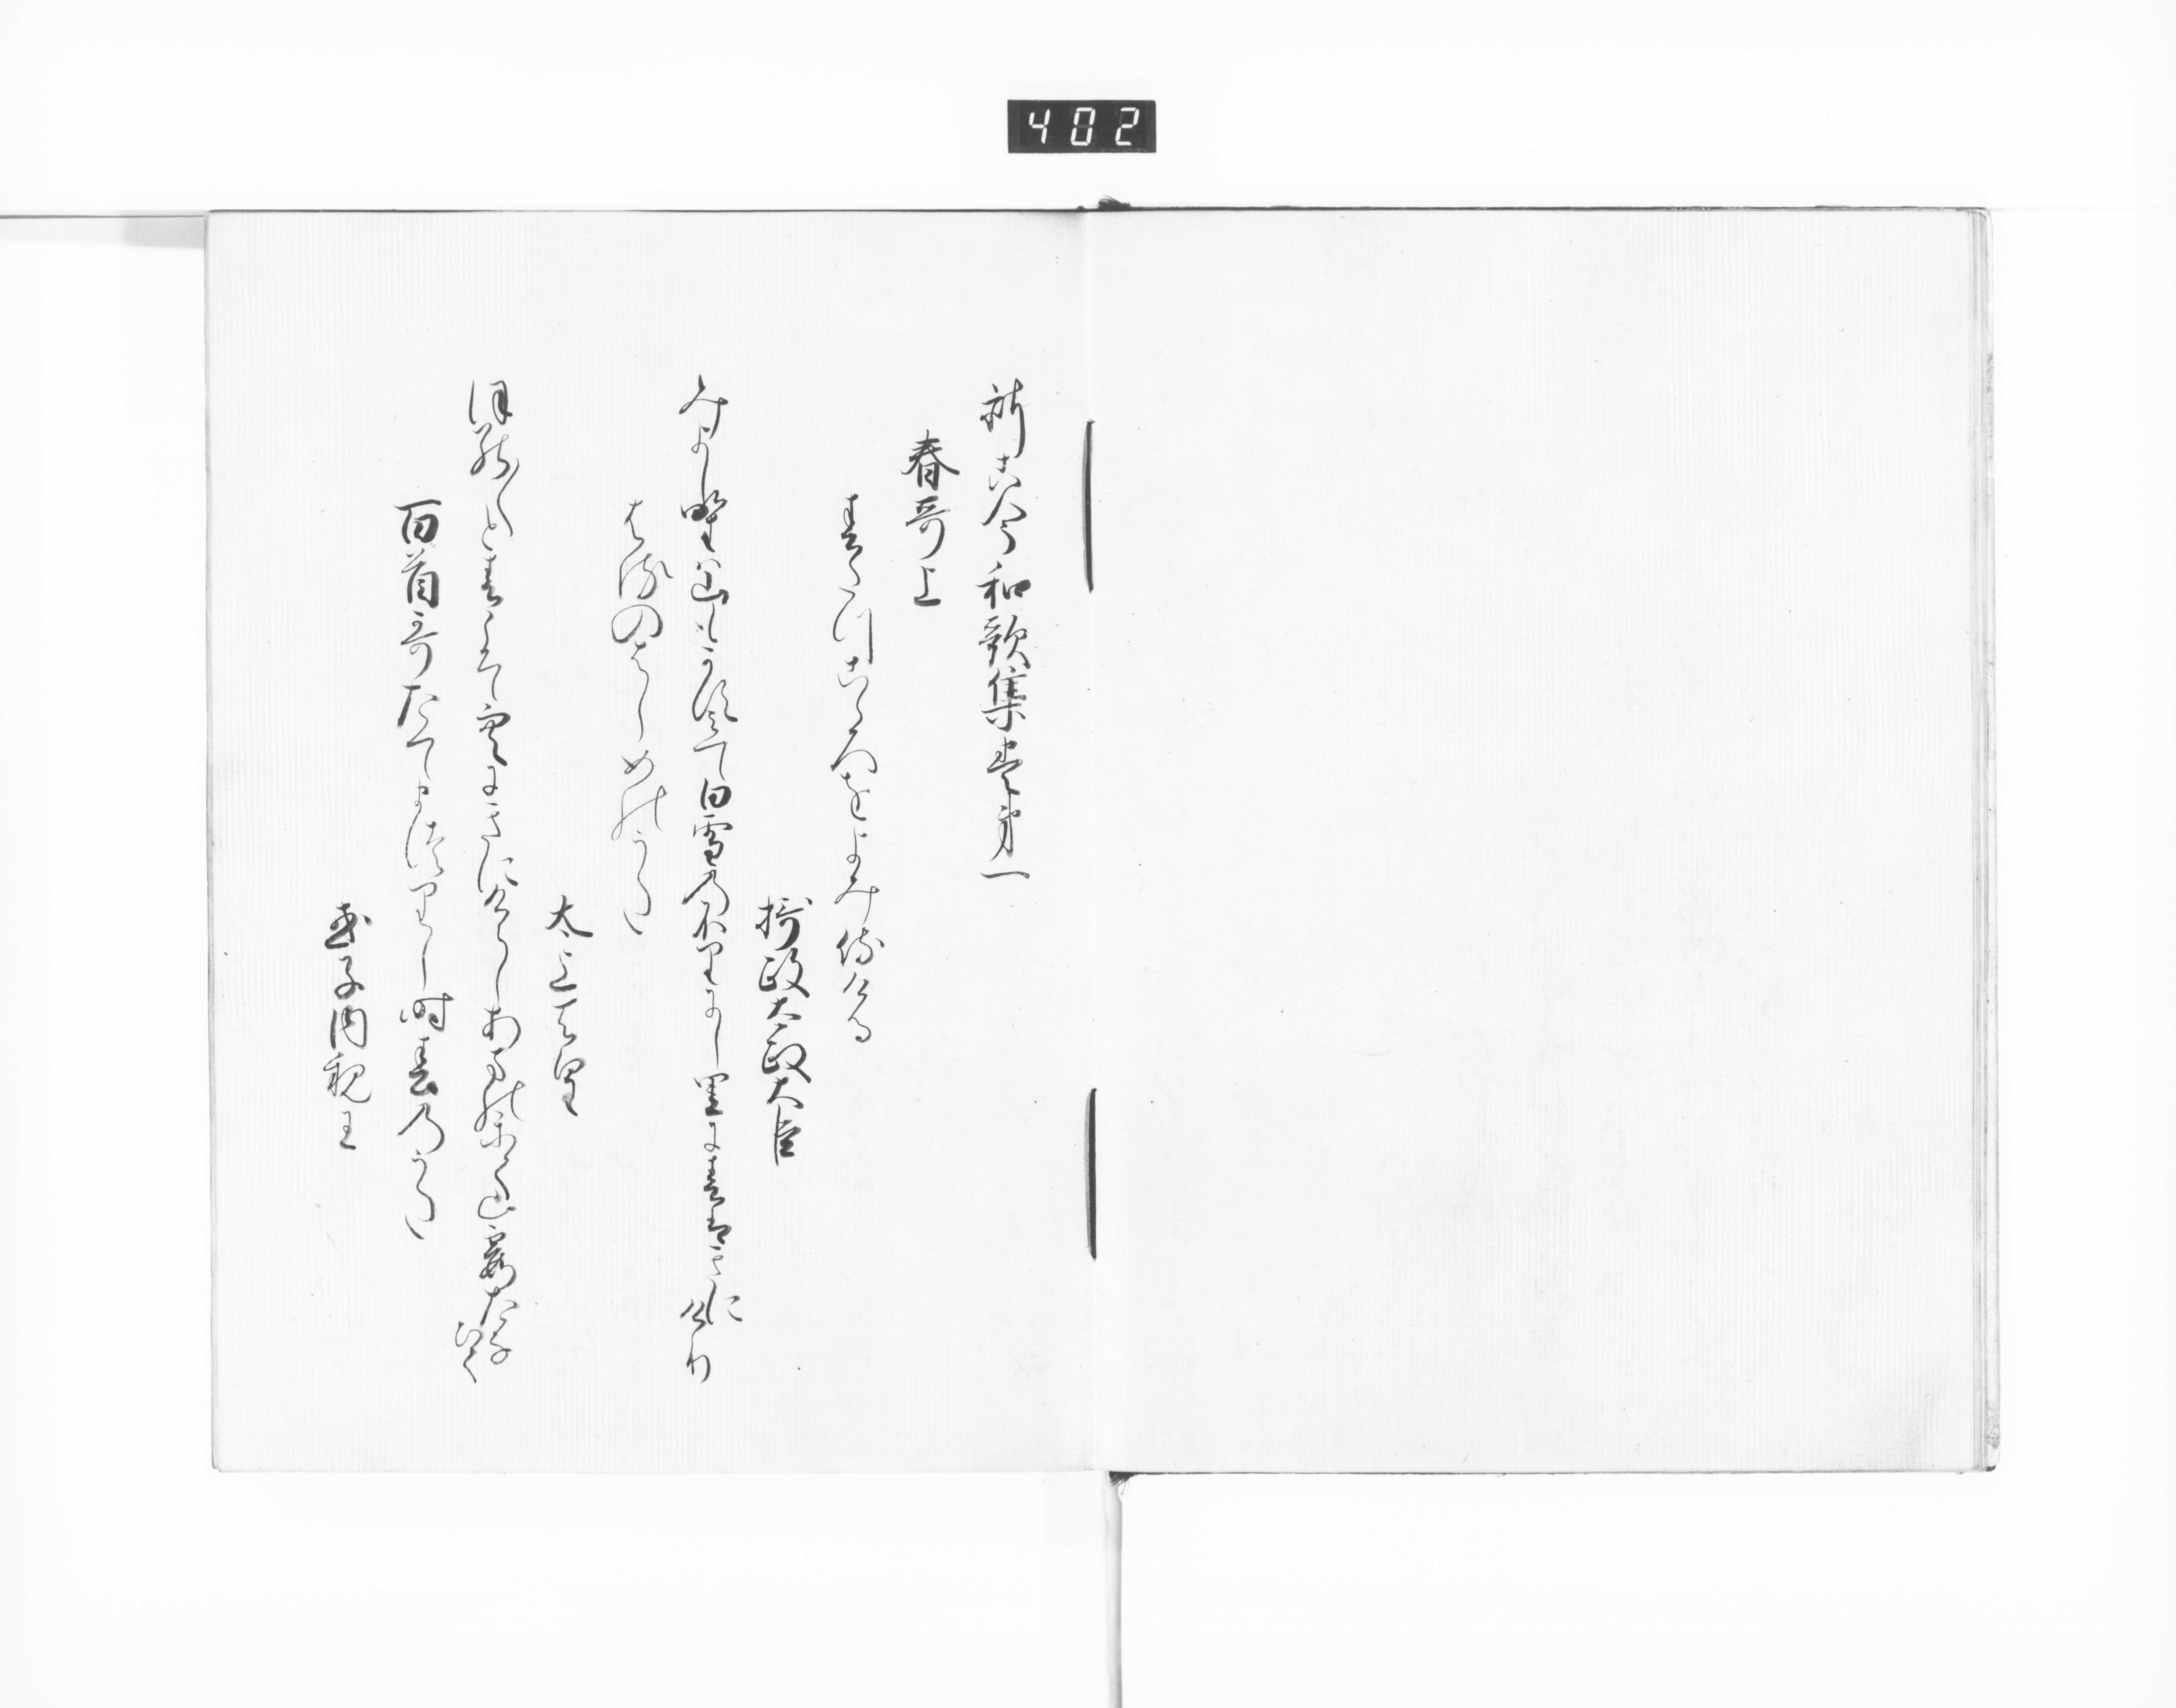 402
新古今和歌集巻第一
春哥上
春たつこゝろをよみ侍ける
摂政太政大臣
みよし野は山もかすみて白雪のふりにし里に春はきにけり
はるのはしめのうた
太上天皇
ほの〱と春こそ空にきにけらしあまのかく山霞たなひく
百首哥たてまつりし時春のうた
式子内親王